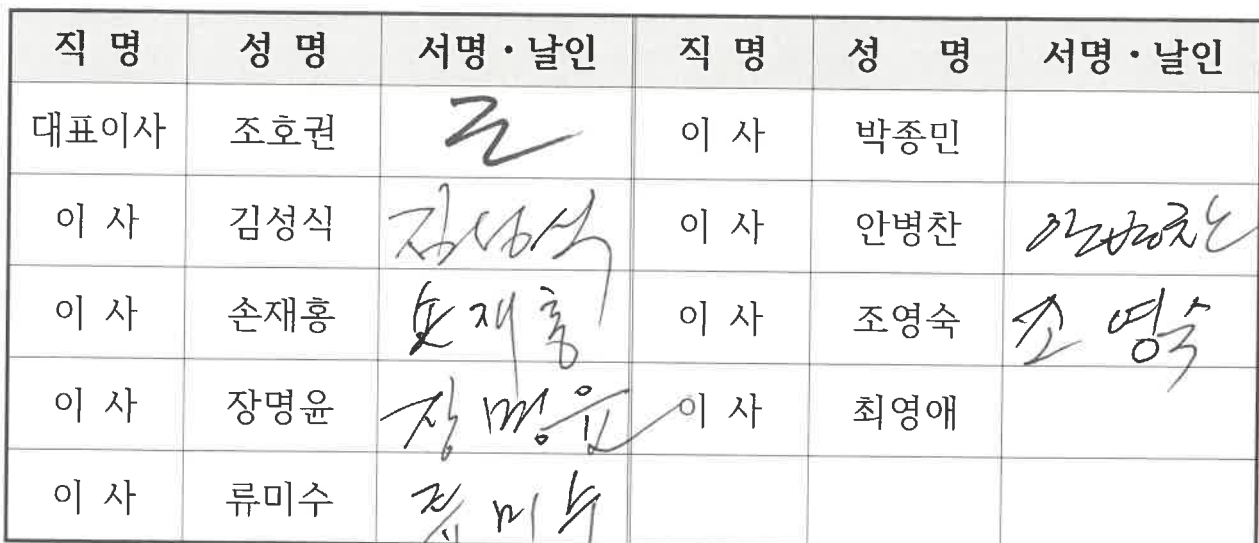 직 명 성 명 서명·날인 직 명 성 명 서명·날인
대표이사 조호권 이 사 박종민
이 사 김성식 김성식 이 사 안병찬 안병찬
이 사 손재홍 손재홍 이 사 조영숙 조영숙
이 사 장명윤 장명윤 이 사 최영애
이 사 류미수 류미수